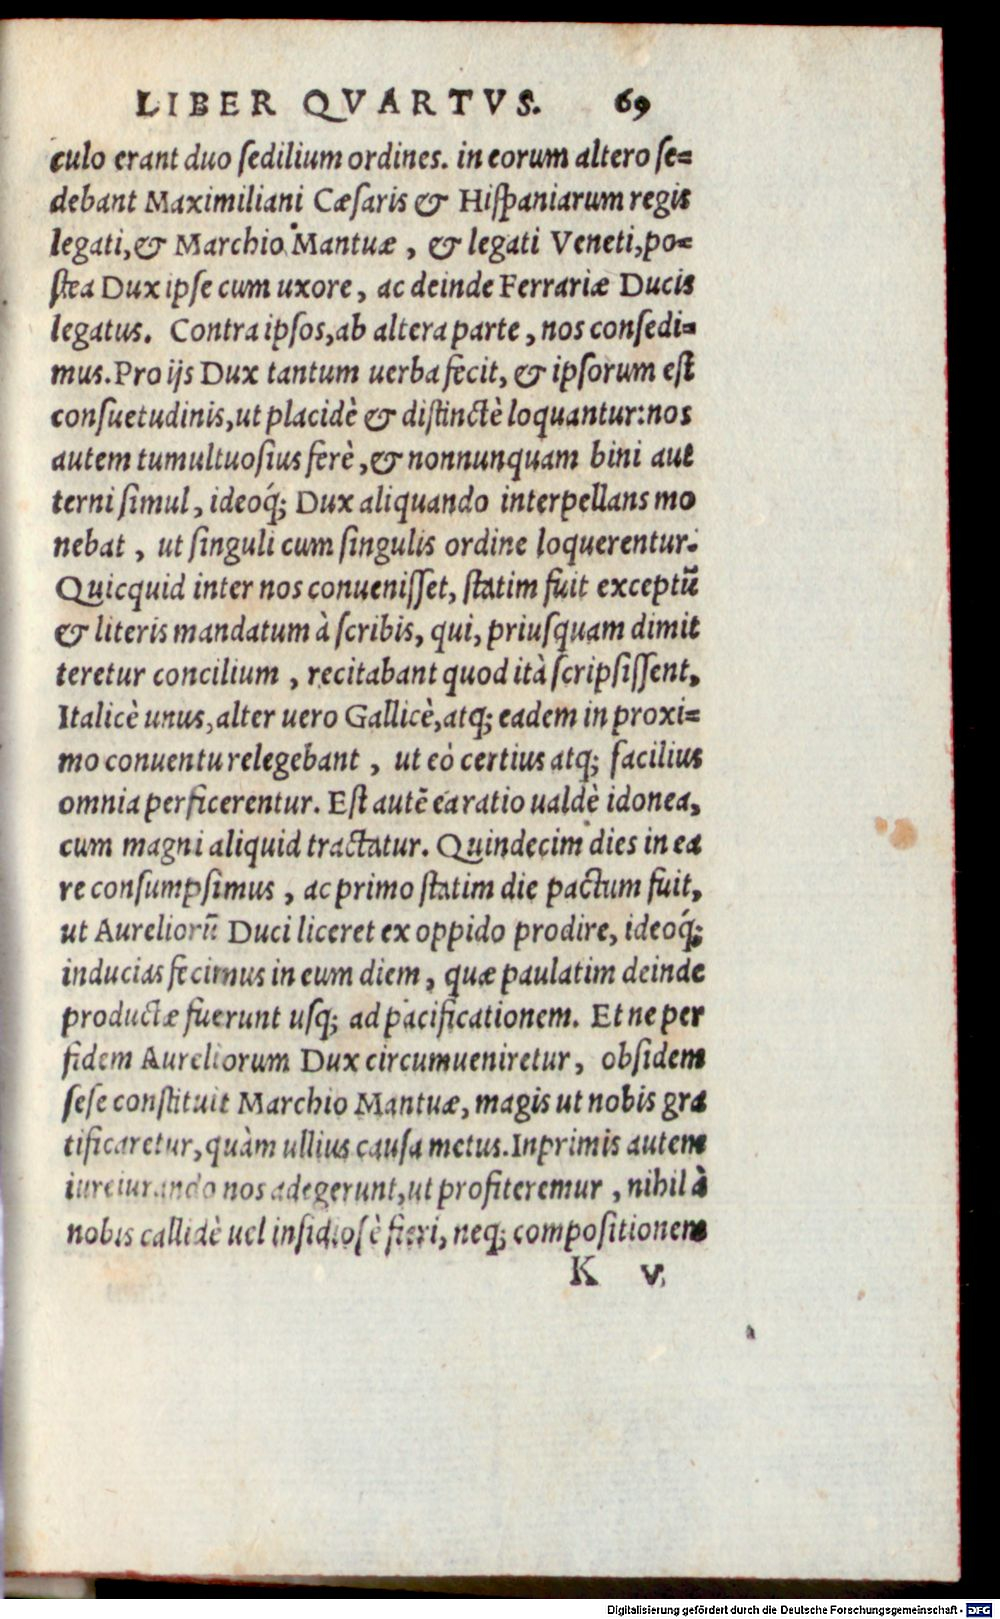 LIBER QVARTVS. 69
culo erant duo sedilium ordines. in eorum altero se=
debant Maximiliani Cæsaris & Hispaniarum regis
legati, & Marchio Mantuæ, & legati Veneti, po=
stea Dux ipse cum uxore, ac deinde Ferrariæ Ducis
legatus. Contra ipsos, ab altera parte, nos consedi=
mus. Pro ijs Dux tantum uerba fecit, & ipsorum est
consuetudinis, ut placidè & distinctè loquantur: nos
autem tumultuosius ferè, & nonnunquam bini aut
terni simul, ideoq́; Dux aliquando interpellans mo
nebat, ut singuli cum singulis ordine loquerentur.
Quicquid inter nos conuenisset, statim fuit exceptũ
& literis mandatum à scribis, qui, priusquam dimit
teretur concilium, recitabant quod ità scripsissent,
Italicè unus, alter uero Gallicè, atq; eadem in proxi=
mo conuentu relegebant, ut eò certius atq; facilius
omnia perficerentur. Est autẽ ea ratio ualdè idonea,
cum magni aliquid tractatur. Quindecim dies in ea
re consumpsimus, ac primo statim die pactum fuit,
ut Aureliorũ Duci liceret ex oppido prodire, ideoq́;
inducias fecimus in eum diem, quæ paulatim deinde
productæ fuerunt usq; ad pacificationem. Et ne per
fidem Aureliorum Dux circumueniretur, obsidem
sese constituit Marchio Mantuæ, magis ut nobis gra
tificaretur, quàm ullius causa metus. Inprimis autem
iureiurando nos adegerunt, ut profiteremur, nihil à
nobis callidè uel insidiosè fieri, neq; compositionem
K v
Digitalisierung gefördert durch die Deutsche Forschungsgemeinschaft - DFG